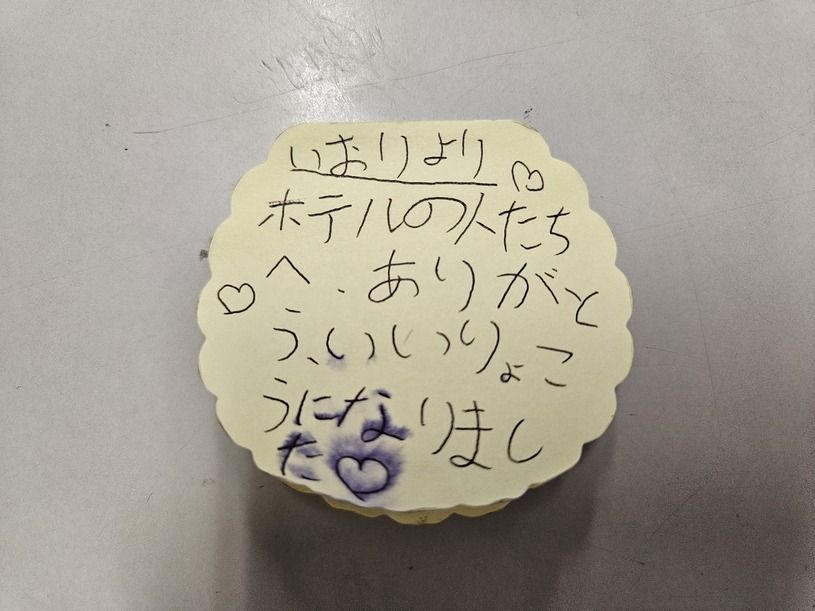 いおりより♡
ホテルの人たち
へ、ありがと
う、いいりょこ
うになりまし
た♡